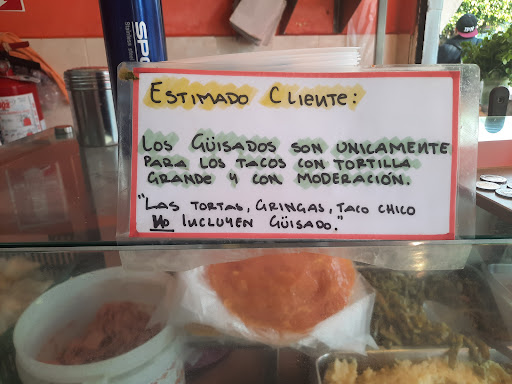 SPO
ESTIMADO CLIENTE:
LOS GÜISADOS SON UNICAMENTE
PARA LOS TACOS CON TORTILLA
GRANDE Y CON MODERACIÓN.
"LAS TORTAS, GRINGAS, TACO CHICO
NO INCLUYEN GÜISADO."